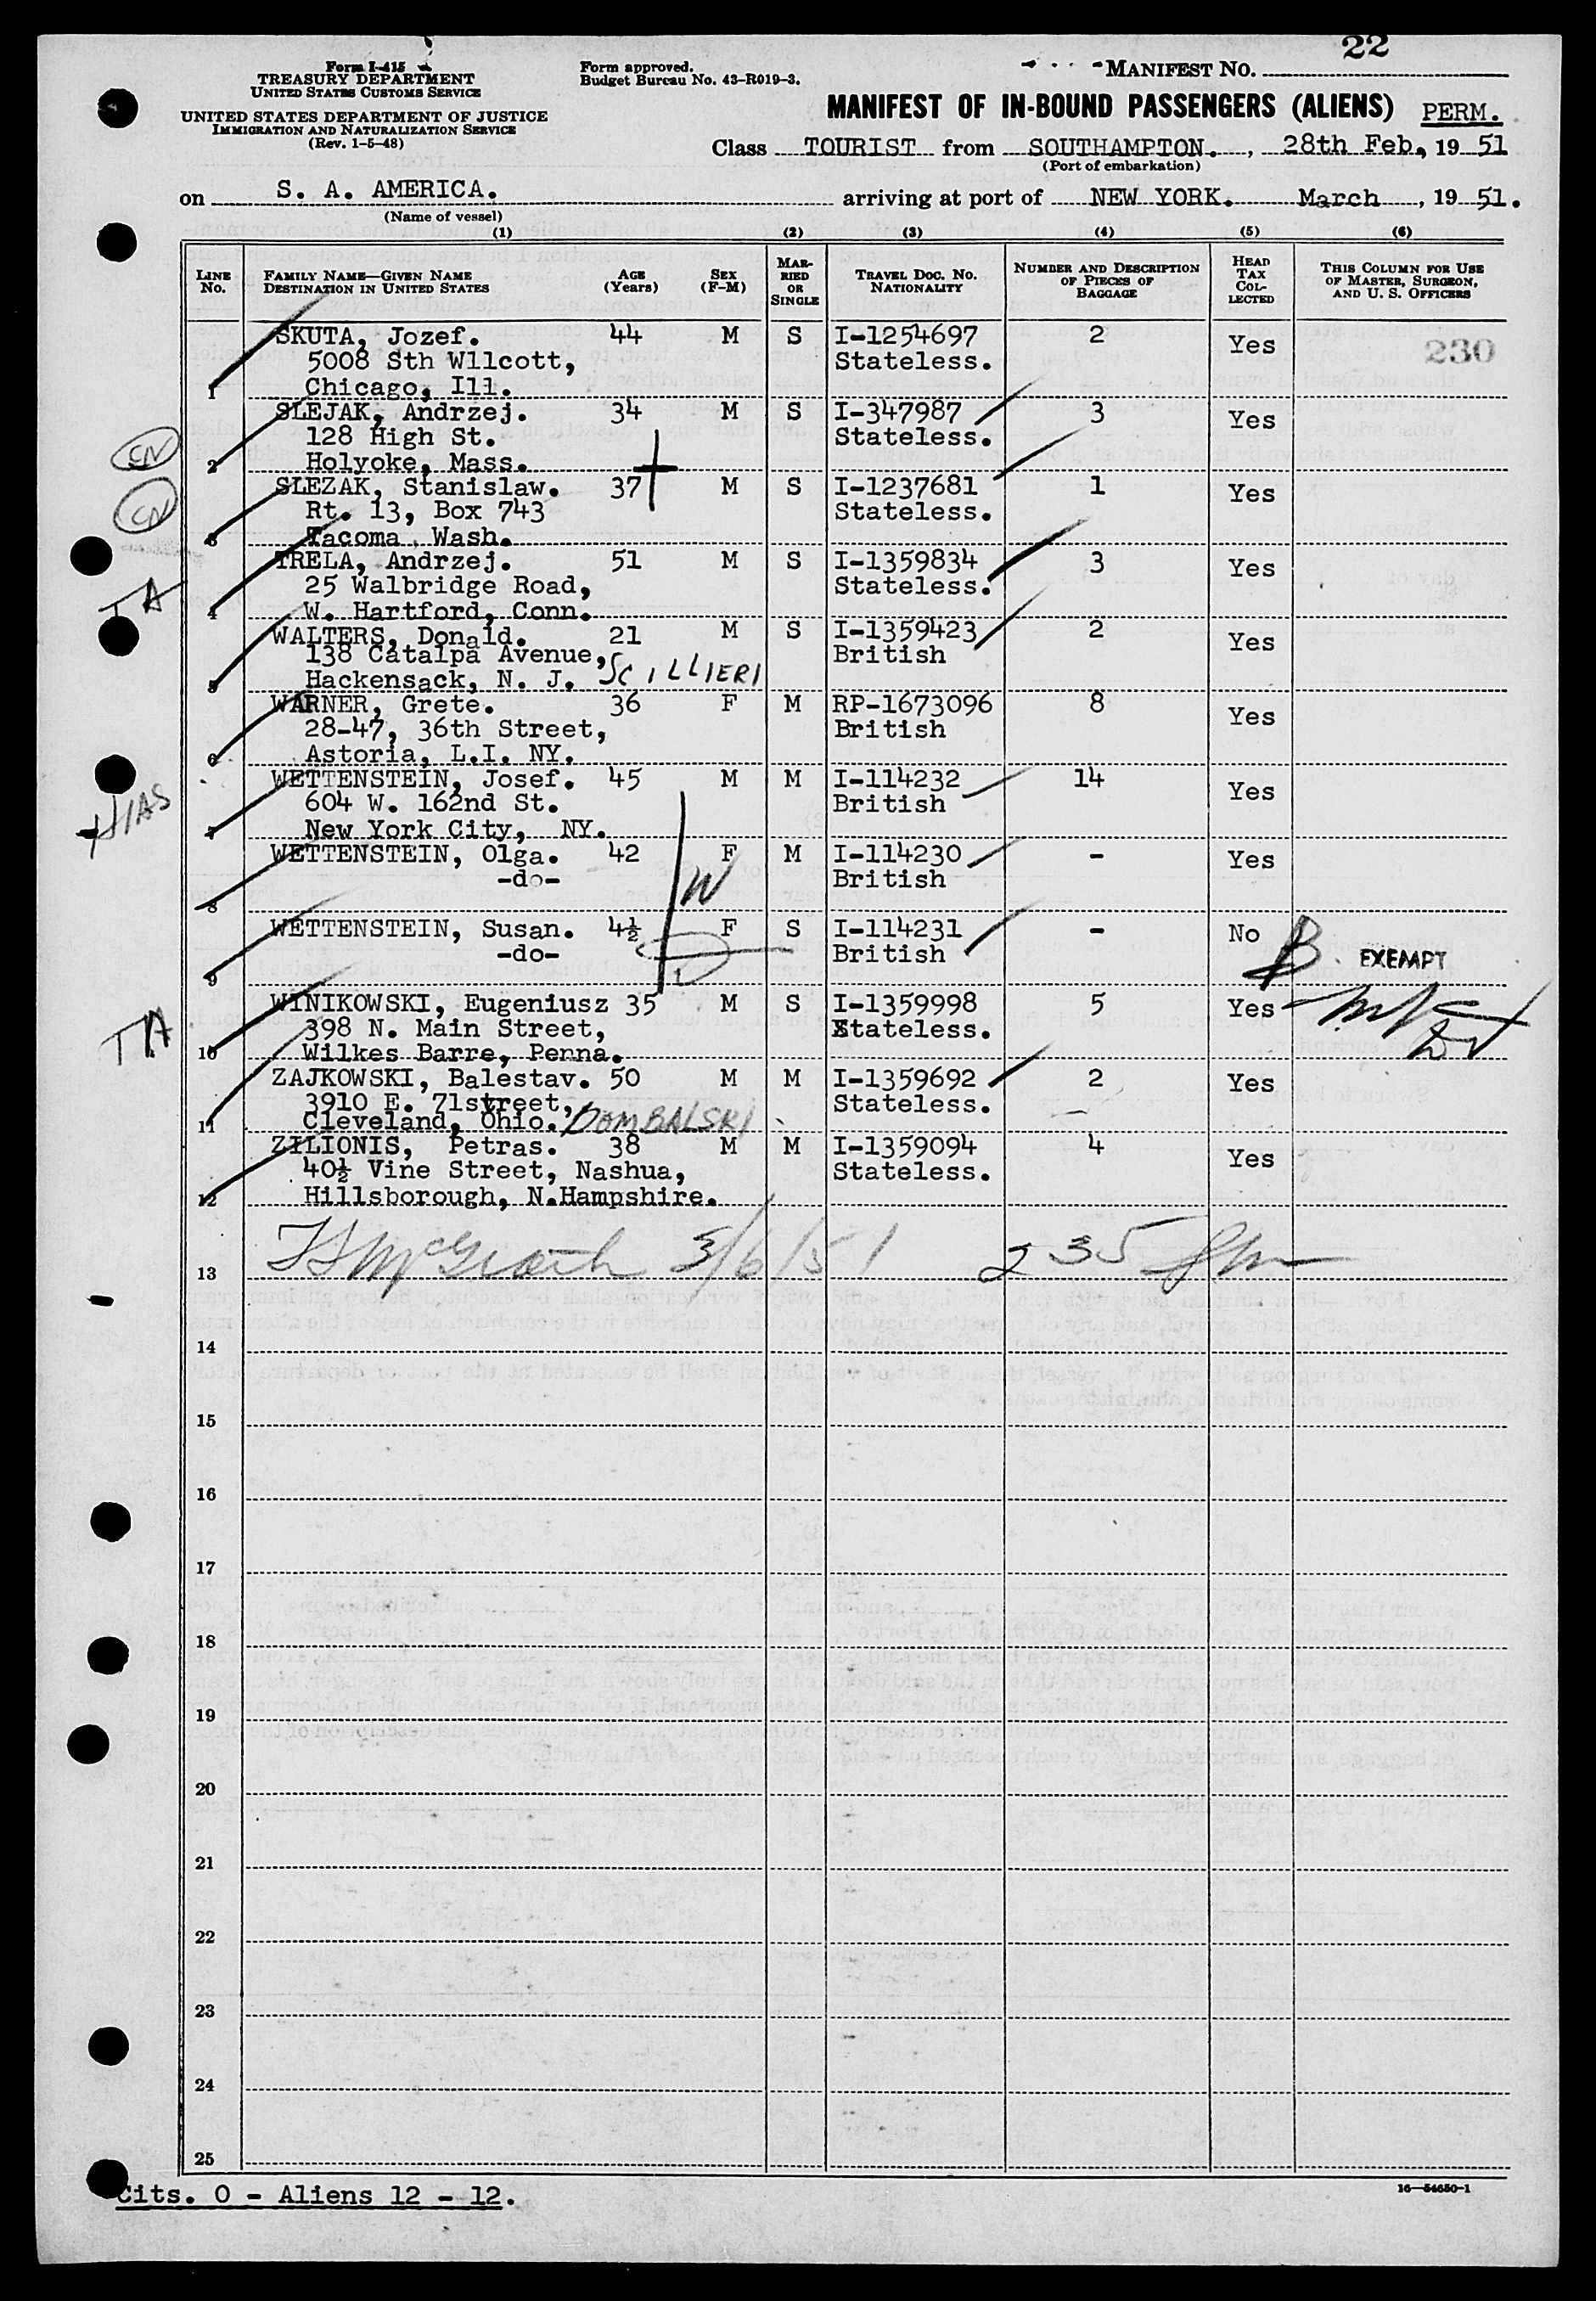 22
Form I-415
TREASURY DEPARTMENT
UNITED STATES CUSTOMS SERVICE
UNITED STATES DEPARTMENT OF JUSTICE
IMMIGRATION AND NATURALIZATION SERVICE
(Rev. 1-5-48)
Form approved.
Budget Bureau No. 43-R019-3.
MANIFEST NO.
MANIFEST OF IN-BOUND PASSENGERS (ALIENS) PERM.
Class TOURIST from SOUTHAMPTON. , 28th Feb., 19 51
(Port of embarkation)
on S. A. AMERICA. arriving at port of NEW YORK. March , 19 51.
(Name of vessel)
(1) (2) (3) (4) (5) (6)
LINE No. FAMILY NAME—GIVEN NAME DESTINATION IN UNITED STATES AGE (Years) SEX (F-M) MARRIED OR SINGLE TRAVEL DOC. NO. NATIONALITY NUMBER AND DESCRIPTION OF PIECES OF BAGGAGE HEAD TAX COLLECTED THIS COLUMN FOR USE OF MASTER, SURGEON, AND U. S. OFFICERS
SKUTA, Jozef. 44 M S I-1254697 2 Yes 230
5008 Sth Wllcott, Stateless.
1 Chicago, Ill.
SLEJAK, Andrzej. 34 M S I-347987 3 Yes
CN 128 High St. Stateless.
2 Holyoke, Mass.
SLEZAK, Stanislaw. 37 M S I-1237681 1 Yes
CN Rt. 13, Box 743 Stateless.
3 Tacoma, Wash.
TRELA, Andrzej. 51 M S I-1359834 3 Yes
25 Walbridge Road, Stateless.
TA 4 W. Hartford, Conn.
WALTERS, Donald. 21 M S I-1359423 2 Yes
138 Catalpa Avenue, British
5 Hackensack, N. J. SCILLIERI
WARNER, Grete. 36 F M RP-1673096 8 Yes
28-47, 36th Street, British
6 Astoria, L.I. NY.
WETTENSTEIN, Josef. 45 M M I-114232 14 Yes
HIAS 604 W. 162nd St. British
7 New York City, NY.
WETTENSTEIN, Olga. 42 F M I-114230 - Yes
-do- W British
8
WETTENSTEIN, Susan. 4½ F S I-114231 - No B EXEMPT
-do- British
9
WINIKOWSKI, Eugeniusz 35 M S I-1359998 5 Yes
TA 398 N. Main Street, Stateless.
10 Wilkes Barre, Penna.
ZAJKOWSKI, Balestav. 50 M M I-1359692 2 Yes
3910 E. 71street, Stateless.
11 Cleveland, Ohio. DOMBALSKI
ZILIONIS, Petras. 38 M M I-1359094 4 Yes
40½ Vine Street, Nashua, Stateless.
12 Hillsborough, N.Hampshire.
McGrath 3/6/51 235 pm
13
14
15
16
17
18
19
20
21
22
23
24
25
Cits. 0 - Aliens 12 - 12.
16—54650-1